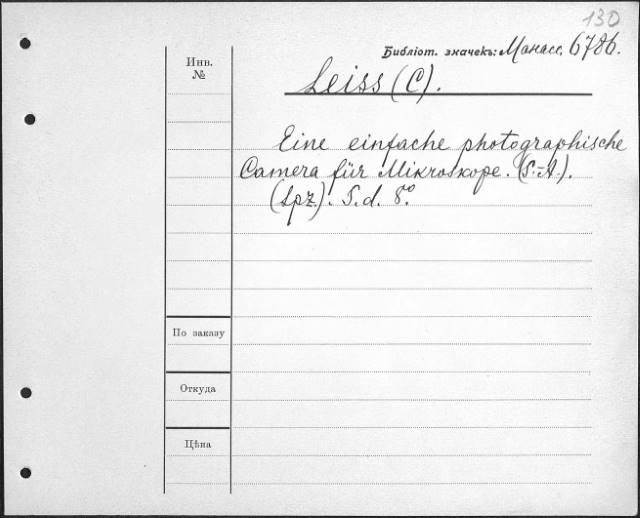 130
Библіот. значекъ: Манасс. 6786.
Инв.
№
Leiss (C).
Eine einfache photographische
Camera für Mikroskope. (S.-A.).
(Lpz.). S. d. 8°.
По заказу
Откуда
Цѣна